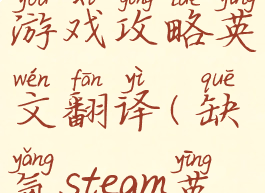 yóu xì gōng lüè yīng
游戏攻略英
wén fān yì quē
文翻译(缺
yǎng yīng
氧steam英